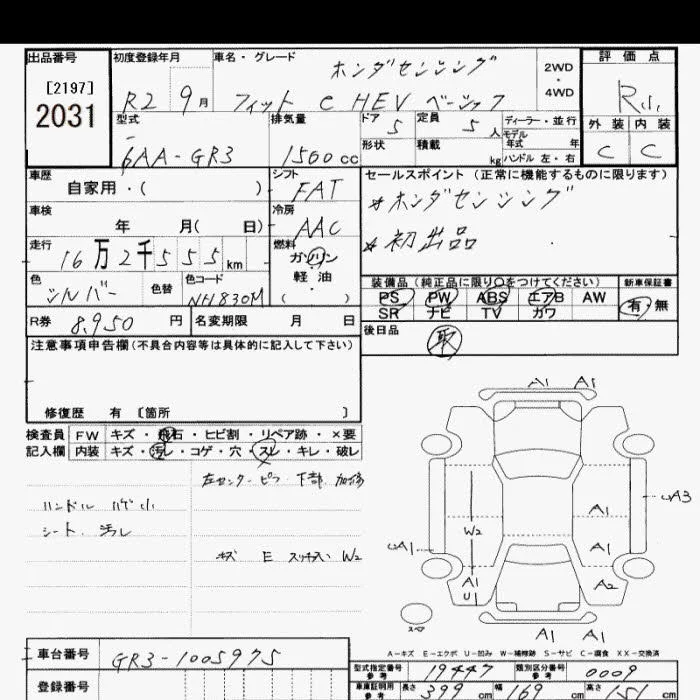 出品番号 初度登録年月 車名・グレード 評価点
[2197]
2031
ホンダセンシング
R2 9月 フィット e HEV ベーシック
2WD
・
4WD
型式 排気量 ドア 5 定員 5人 ディーラー・並行
モデル
年式 年
外装 内装
6AA-GR3 1500cc 形状 積載 kg ハンドル 左・右
C C
車歴 自家用・( )
シフト FAT
セールスポイント(正常に機能するものに限ります)
*ホンダセンシング
車検 年 月( 日)
冷房 AAC
*初出品
走行 16万2千555km
燃料 ガソリン
軽・油
・( )
色 シルバー 色替 色コード NH830M
装備品(純正品に限り○をつけてください) 新車保証書
PS PW ABS エアB AW
SR ナビ TV カワ
有・無
R券 8,950円 名変期限 月 日
後日品
取
注意事項申告欄(不具合内容等は具体的に記入して下さい)
修復歴 有 〔箇所 〕
検査員 FW キズ・飛石・ヒビ割・リペア跡・×要
記入欄 内装 キズ・汚レ・コゲ・穴・スレ・キレ・破レ
左センターピラ 下部
ハンドル ハゲ小
シート 汚レ
キズ E W2
A1 A1
A3
A1
W2
A1
A1
A1
U1
A2
スペア
A1 A1
A-キズ E-エクボ U-凹み W-補修跡 S-サビ C-腐食 XX-交換済
車台番号 GR3-1005975
登録番号
型式指定番号 参考 19447 類別区分番号 参考 0009
車庫証明用 参考 長さ 399cm 幅 169cm 高さ 151cm